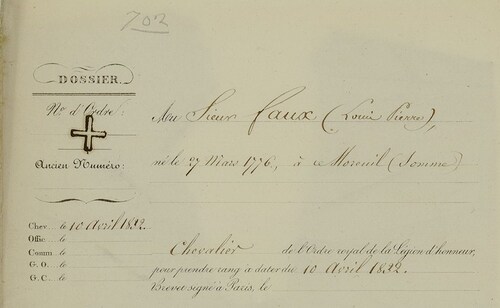 702
DOSSIER.
N.º d'Ordre :
Ancien Numéro :
Mr Sieur Faux (Louis Pierre),
né le 27 Mars 1776, à Moreuil (Somme)
Chev. le 10 Avril 1832
Offic. le
Comm. le
G. O. le
G. C. le
Chevalier de l'Ordre royal de la Légion d'honneur,
pour prendre rang à dater du 10 Avril 1832.
Brevet signé à Paris, le